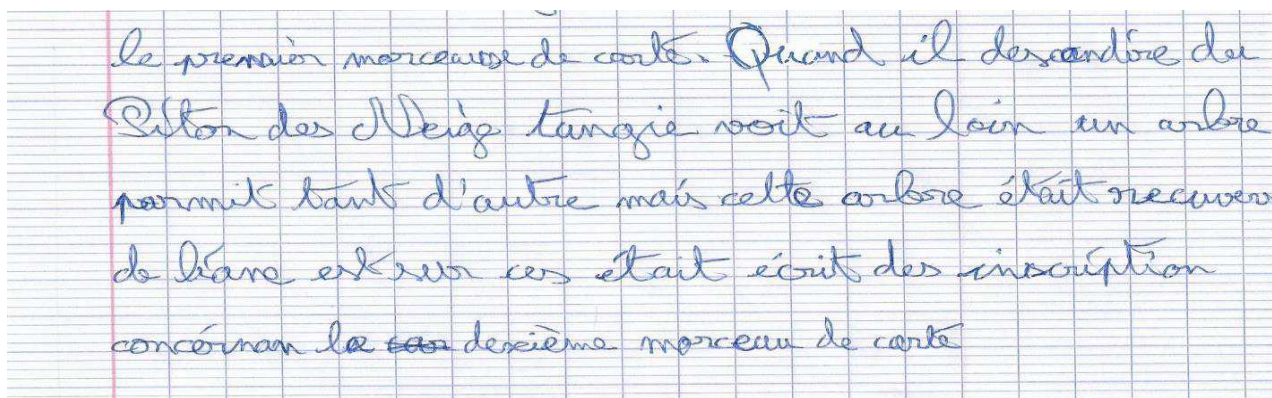 le premier morceause de carte. Quand il descendire du
Piton des Neige tangie voit au loin un arbre
parmit tant d'autre mais cette arbre était recuver
de liane est sur ces était écrit des inscription
concernan le dexième morceau de carte